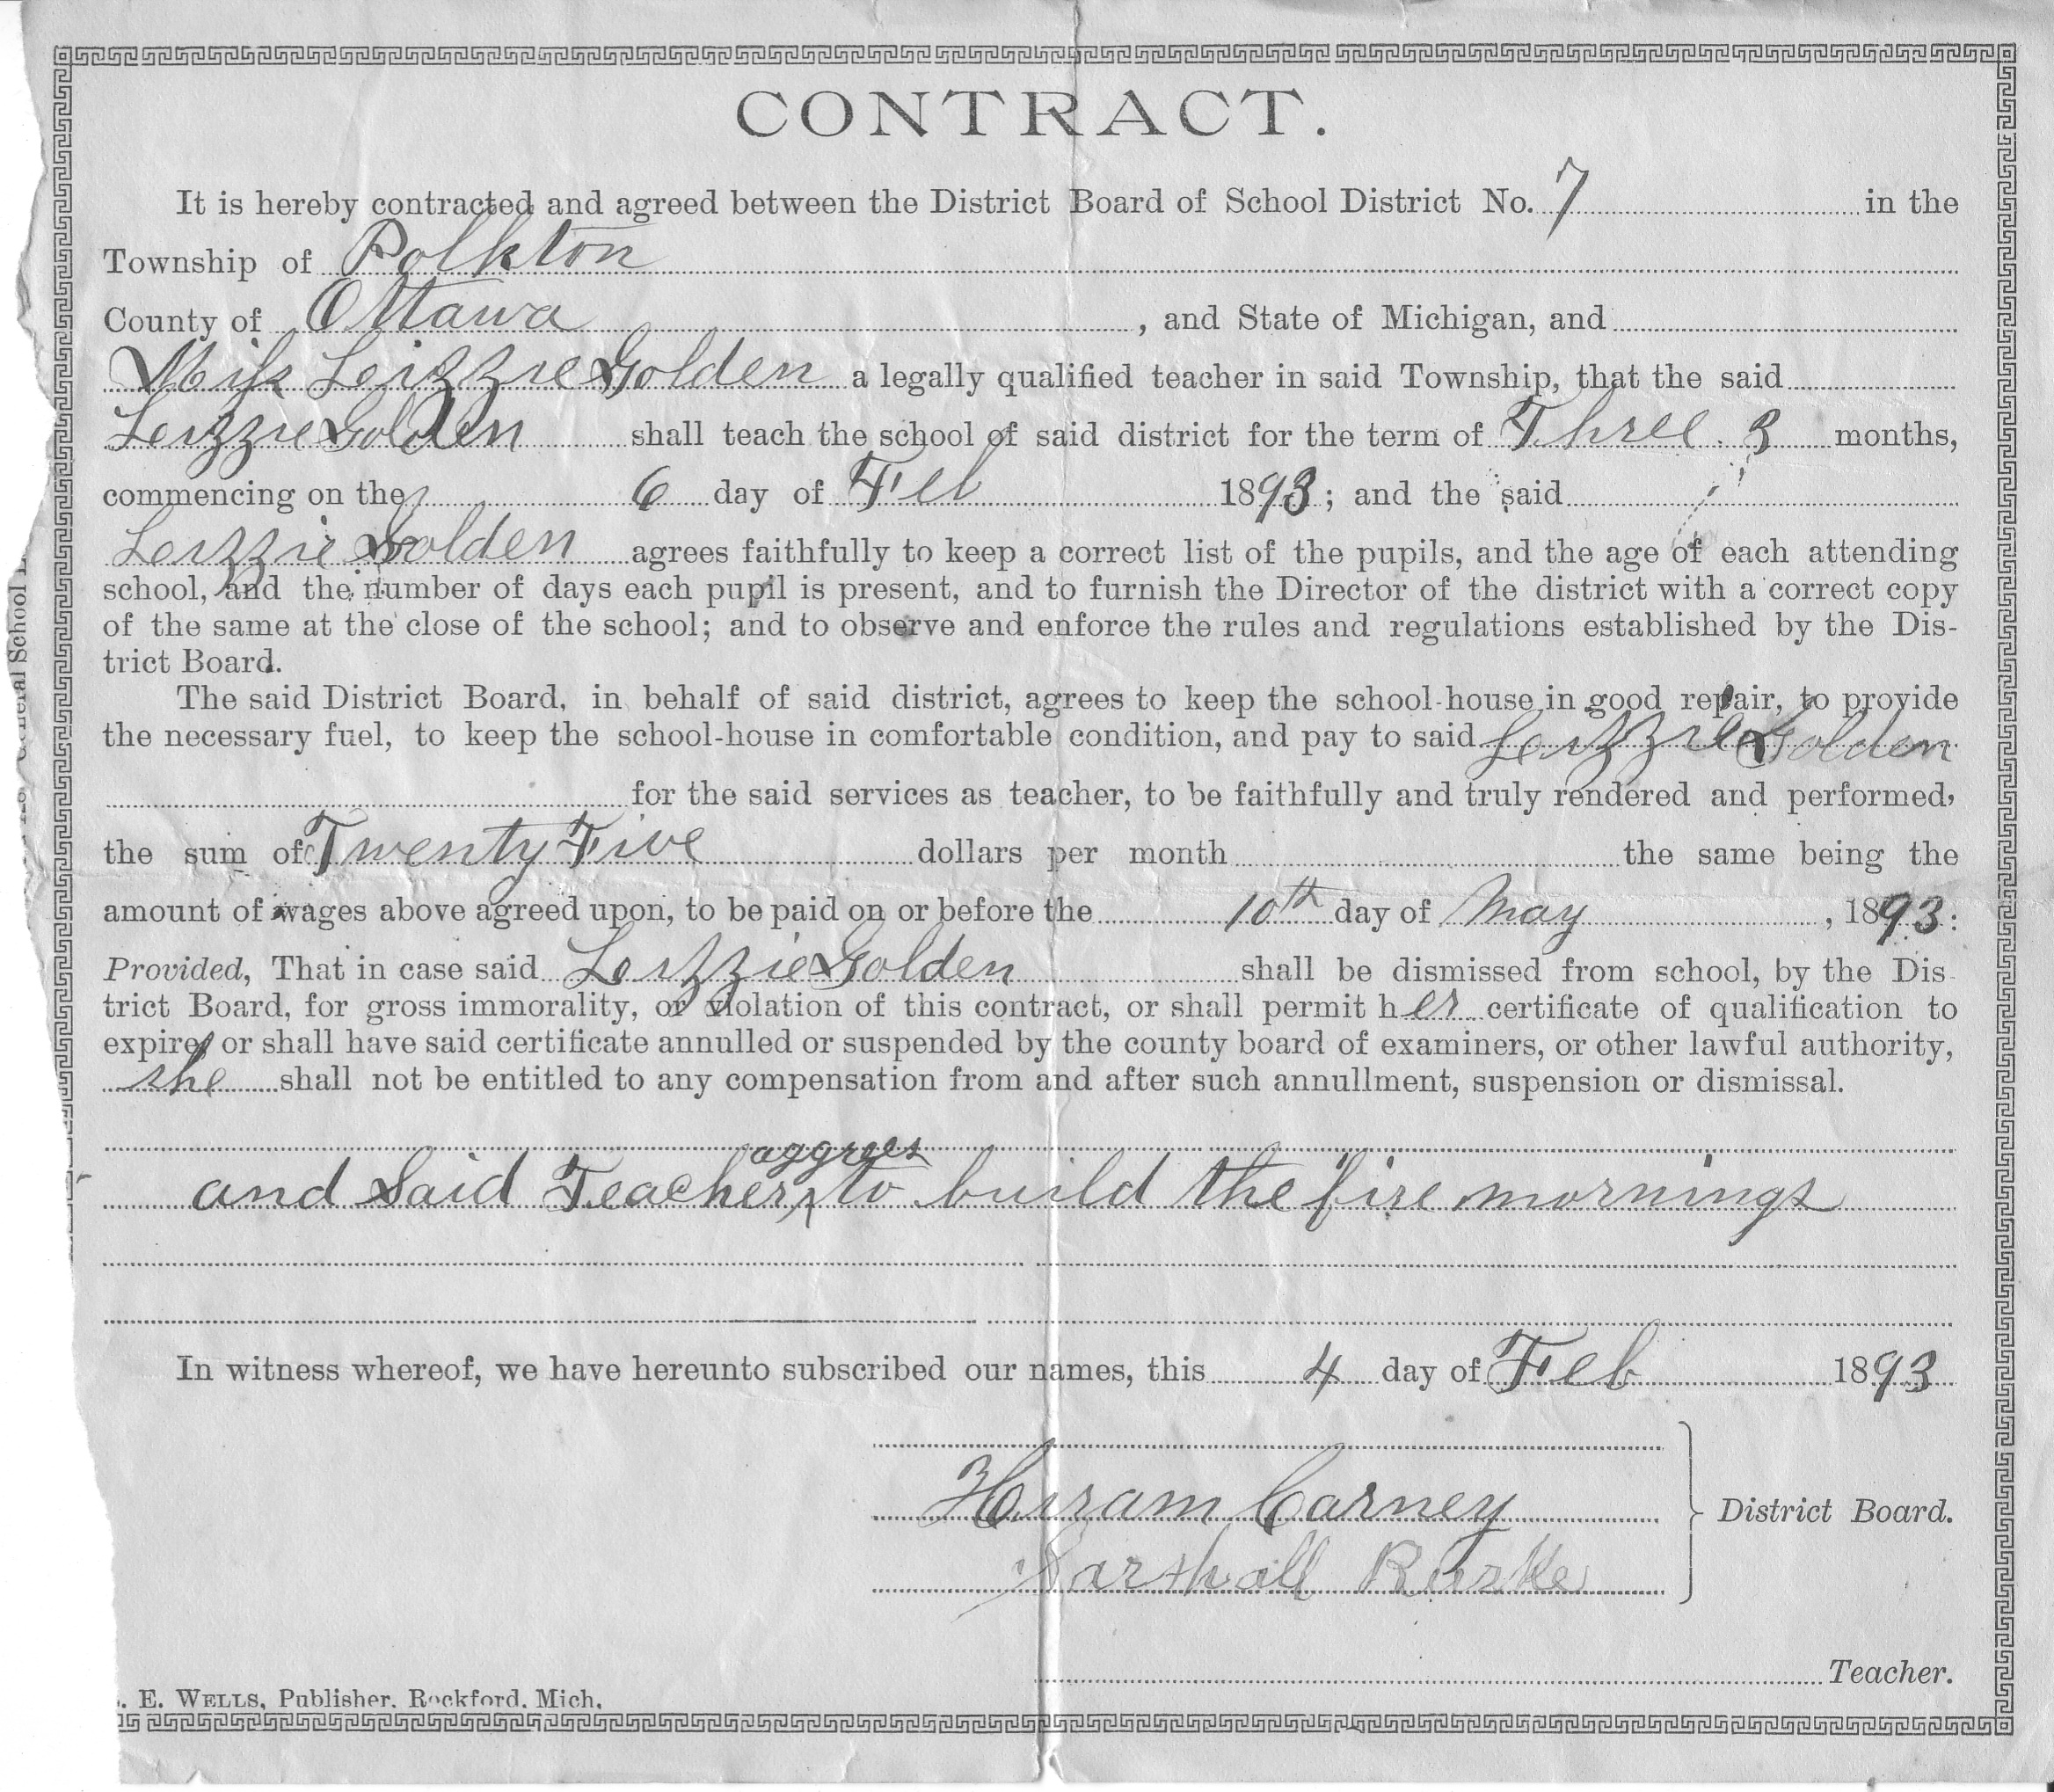 CONTRACT.
It is hereby contracted and agreed between the District Board of School District No. 7 in the
Township of Polkton
County of Ottawa, and State of Michigan, and
Miss Leizzie Golden a legally qualified teacher in said Township, that the said
Leizzie Golden shall teach the school of said district for the term of Three 3 months,
commencing on the 6 day of Feb 1893; and the said
Leizzie Golden agrees faithfully to keep a correct list of the pupils, and the age of each attending
school, and the number of days each pupil is present, and to furnish the Director of the district with a correct copy
of the same at the close of the school; and to observe and enforce the rules and regulations established by the Dis-
trict Board.
The said District Board, in behalf of said district, agrees to keep the school-house in good repair, to provide
the necessary fuel, to keep the school-house in comfortable condition, and pay to said Leizzie Golden
for the said services as teacher, to be faithfully and truly rendered and performed,
the sum of Twenty Five dollars per month the same being the
amount of wages above agreed upon, to be paid on or before the 10th day of May, 1893:
Provided, That in case said Leizzie Golden shall be dismissed from school, by the Dis-
trict Board, for gross immorality, or violation of this contract, or shall permit her certificate of qualification to
expire, or shall have said certificate annulled or suspended by the county board of examiners, or other lawful authority,
she shall not be entitled to any compensation from and after such annullment, suspension or dismissal.
aggrees
and Said Teacher to build the fire mornings
In witness whereof, we have hereunto subscribed our names, this 4 day of Feb 1893
Hiram Carney
District Board.
Marshall Burke
Teacher.
. E. WELLS, Publisher, Rockford, Mich.
General School